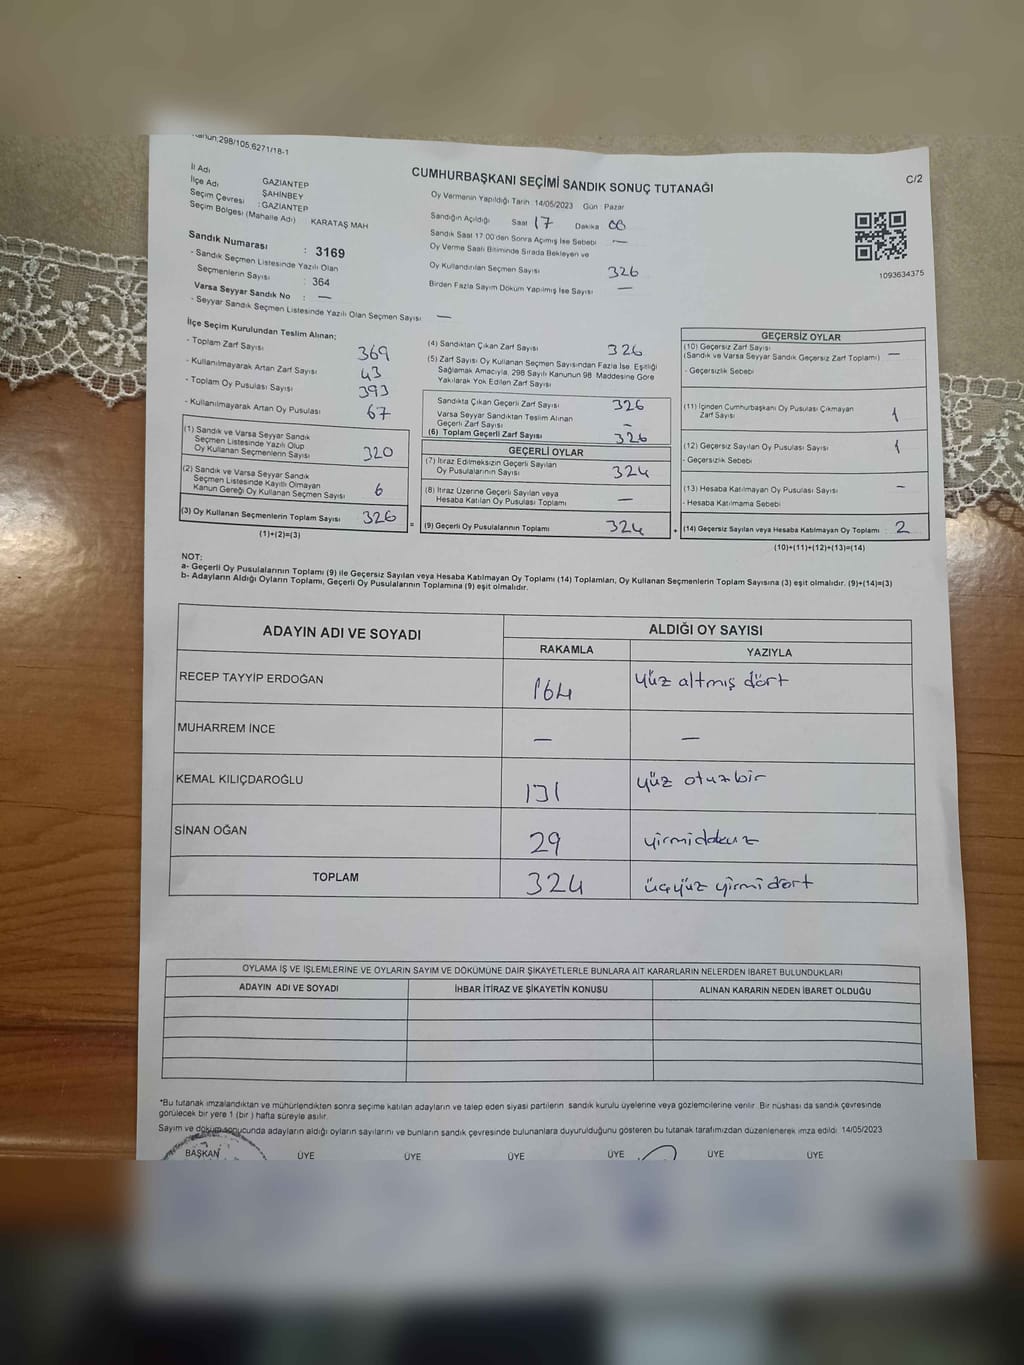 Kanun:298/105,6271/18-1
CUMHURBAŞKANI SEÇİMİ SANDIK SONUÇ TUTANAĞI
C/2
İl Adı : GAZİANTEP
İlçe Adı ŞAHİNBEY
Seçim Çevresi : GAZİANTEP
Seçim Bölgesi (Mahalle Adı) KARATAŞ MAH
Sandık Numarası : 3169
- Sandık Seçmen Listesinde Yazılı Olan
Seçmenlerin Sayısı : 364
Varsa Seyyar Sandık No : —
- Seyyar Sandık Seçmen Listesinde Yazılı Olan Seçmen Sayısı —
Oy Vermenin Yapıldığı Tarih : 14/05/2023 Gün : Pazar
Sandığın Açıldığı Saat 17 Dakika 00
Sandık Saat 17:00'den Sonra Açılmış İse Sebebi —
Oy Verme Saati Bitiminde Sırada Bekleyen ve
Oy Kullandırılan Seçmen Sayısı 326
Birden Fazla Sayım Döküm Yapılmış İse Sayısı —
1093634375
İlçe Seçim Kurulundan Teslim Alınan;
- Toplam Zarf Sayısı 369
- Kullanılmayarak Artan Zarf Sayısı 43
- Toplam Oy Pusulası Sayısı 393
- Kullanılmayarak Artan Oy Pusulası 67
(1) Sandık ve Varsa Seyyar Sandık
Seçmen Listesinde Yazılı Olup
Oy Kullanan Seçmenlerin Sayısı 320
(2) Sandık ve Varsa Seyyar Sandık
Seçmen Listesinde Kayıtlı Olmayan
Kanun Gereği Oy Kullanan Seçmen Sayısı 6
(3) Oy Kullanan Seçmenlerin Toplam Sayısı 326
(1)+(2)=(3)
(4) Sandıktan Çıkan Zarf Sayısı 326
(5) Zarf Sayısı Oy Kullanan Seçmen Sayısından Fazla İse, Eşitliği
Sağlamak Amacıyla, 298 Sayılı Kanunun 98. Maddesine Göre
Yakılarak Yok Edilen Zarf Sayısı
Sandıkta Çıkan Geçerli Zarf Sayısı 326
Varsa Seyyar Sandıktan Teslim Alınan
Geçerli Zarf Sayısı —
(6) Toplam Geçerli Zarf Sayısı 326
GEÇERLİ OYLAR
(7) İtiraz Edilmeksizin Geçerli Sayılan
Oy Pusulalarının Sayısı 324
(8) İtiraz Üzerine Geçerli Sayılan veya
Hesaba Katılan Oy Pusulası Toplamı —
= (9) Geçerli Oy Pusulalarının Toplamı 324
GEÇERSİZ OYLAR
(10) Geçersiz Zarf Sayısı
(Sandık ve Varsa Seyyar Sandık Geçersiz Zarf Toplamı) —
- Geçersizlik Sebebi
(11) İçinden Cumhurbaşkanı Oy Pusulası Çıkmayan
Zarf Sayısı 1
(12) Geçersiz Sayılan Oy Pusulası Sayısı 1
- Geçersizlik Sebebi
(13) Hesaba Katılmayan Oy Pusulası Sayısı —
- Hesaba Katılmama Sebebi
+ (14) Geçersiz Sayılan veya Hesaba Katılmayan Oy Toplamı : 2
(10)+(11)+(12)+(13)=(14)
NOT:
a- Geçerli Oy Pusulalarının Toplamı (9) ile Geçersiz Sayılan veya Hesaba Katılmayan Oy Toplamı (14) Toplamları, Oy Kullanan Seçmenlerin Toplam Sayısına (3) eşit olmalıdır. (9)+(14)=(3)
b- Adayların Aldığı Oyların Toplamı, Geçerli Oy Pusulalarının Toplamına (9) eşit olmalıdır.
ADAYIN ADI VE SOYADI
ALDIĞI OY SAYISI
RAKAMLA YAZIYLA
RECEP TAYYİP ERDOĞAN 164 yüz altmış dört
MUHARREM İNCE — —
KEMAL KILIÇDAROĞLU 131 yüz otuzbir
SİNAN OĞAN 29 yirmidokuz
TOPLAM 324 üçyüz yirmidört
OYLAMA İŞ VE İŞLEMLERİNE VE OYLARIN SAYIM VE DÖKÜMÜNE DAİR ŞİKAYETLERLE BUNLARA AİT KARARLARIN NELERDEN İBARET BULUNDUKLARI
ADAYIN ADI VE SOYADI İHBAR İTİRAZ VE ŞİKAYETİN KONUSU ALINAN KARARIN NEDEN İBARET OLDUĞU
*Bu tutanak imzalandıktan ve mühürlendikten sonra seçime katılan adayların ve talep eden siyasi partilerin sandık kurulu üyelerine veya gözlemcilerine verilir. Bir nüshası da sandık çevresinde
görülecek bir yere 1 (bir ) hafta süreyle asılır.
Sayım ve döküm sonucunda adayların aldığı oyların sayılarını ve bunların sandık çevresinde bulunanlara duyurulduğunu gösteren bu tutanak tarafımızdan düzenlenerek imza edildi. 14/05/2023
BAŞKAN ÜYE ÜYE ÜYE ÜYE ÜYE ÜYE